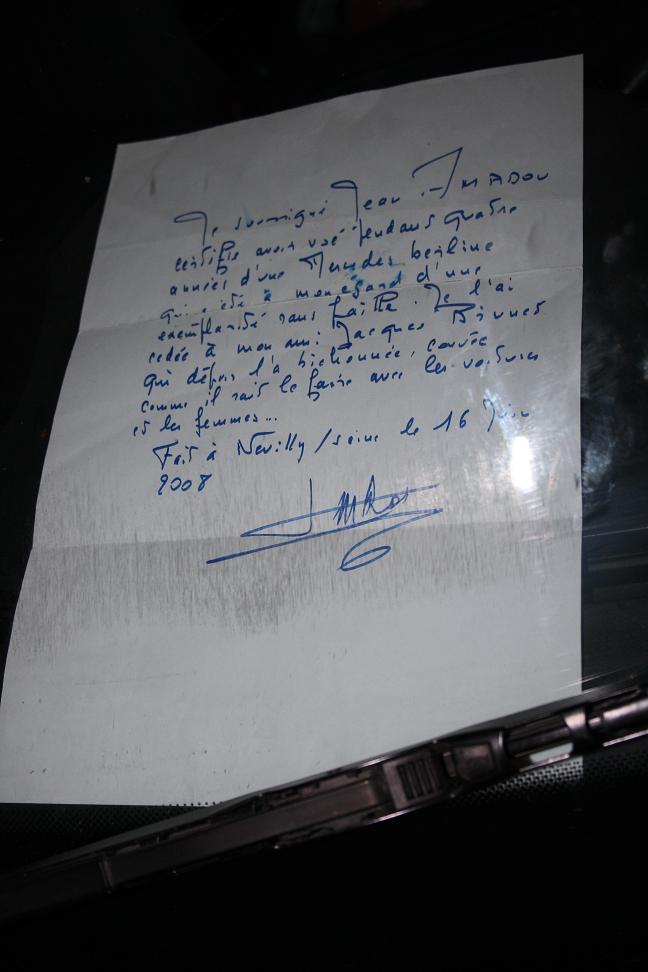 Je soussigné Jean AMADOU
certifie avoir usé pendant quatre
années d'une Mercedes berline
qui a été à mon égard d'une
exemplarité sans faille. Je l'ai
cédée à mon ami Jacques
qui depuis l'a bichonnée, couvée
comme il sait le faire avec les voitures
et les femmes...
Fait à Neuilly/seine le 16 Juin
2008